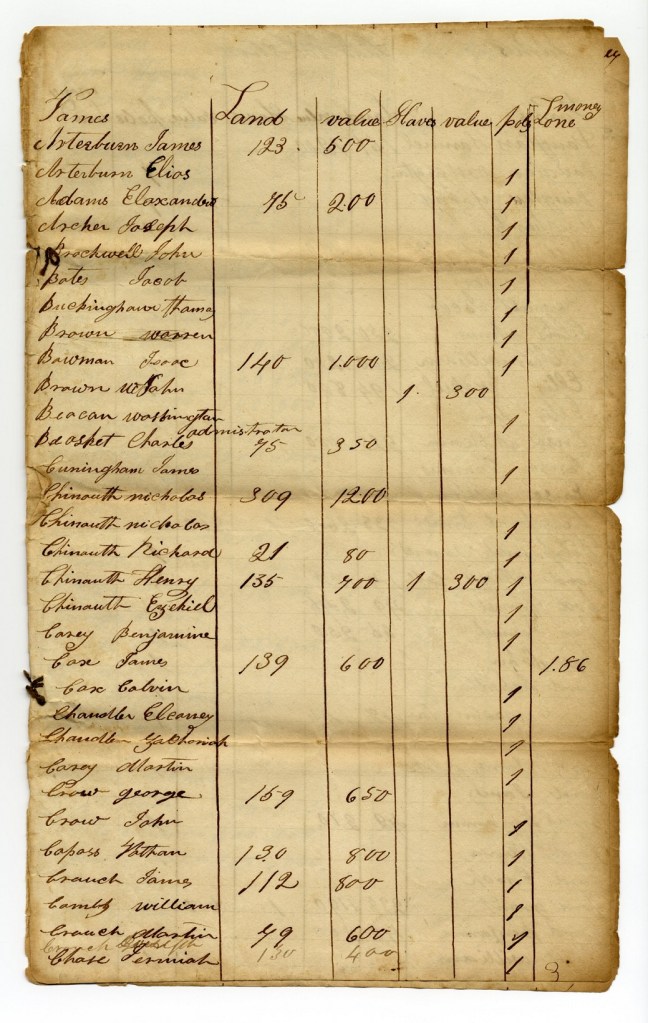 Names Land value Slaves value pols T money Lone
Arterburn James 123. 500
Arterburn Elias 1
Adams Elaxander 75 200 1
Archer Joseph 1
Brockwell John 1
Bates Jacob 1
Buckingham thomas 1
Brown warren 1
Bowman Isac 140 1.000 1
Brown W John 1. 300
Beacan washington 1
admistrator
Baosket Charles 75 350
Cuningham James 1
Chinouth nicholas 309 1200
Chinouth nicholas 1
Chinouth Richard 21 80 1
Chinouth Henry 135 700 1 300 1
Chinouth Ezekiel 1
Carey Benjamine 1
Cox James 139 600 1.86
Cox Calvin 1
Chandler Eleaney 1
Chandler Zachoriah 1
Carey Martin 1
Crow george 159 650
Crow John 1
Capass Nathan 130 800 1
Crauch James 112 800 1
Combs william 1
Crauch Martin 79 600 1
Crauch 130 400
Chase Jermiah 1 3